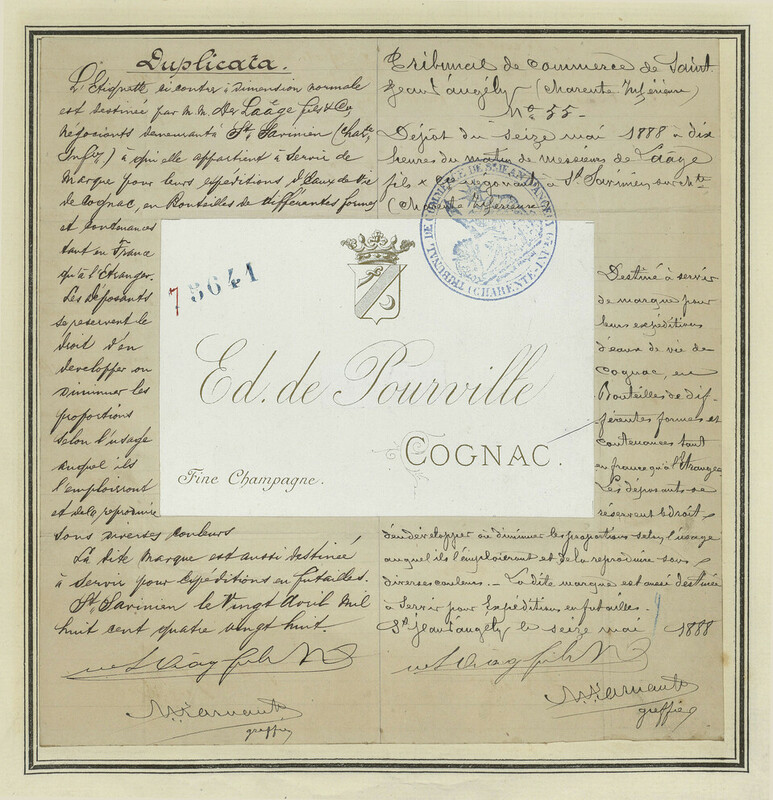 Duplicata.
L'Etiquette ci contre à dimension normale
est destinée par M.M. De Laâge fils & Co
négociants demeurants St Savinien (Chate
Infre) à qui elle appartient à servir de
marque pour leurs expéditions d'Eaux de Vie
de Cognac, en Bouteilles de différentes formes
et contenances
tant en France
qu'à l'Etranger.
Les déposants
se reservent le
droit d'en
developper ou
diminuer les
proportions
selon l'usage
auquel ils
l'emploiront
et de la reproduire
sous diverses couleurs
La dite marque est aussi destinée
à servir pour Expéditions en futailles.
St Savinien le Vingt Avril Mil
huit cent quatre vingt huit.
greffier
Tribunal de Commerce de Saint
Jean d'angély (Charente Inférieure)
No 55-
Dépôt du seize mai 1888 à dix
heures du matin de messieurs de Laâge
fils & Co à St Savinien sur chte
(Charente Inférieure)
TRIBUNAL DE COMMERCE DE ST JEAN D'ANGELY (CHARENTE-INF.)
73641
Ed. de Pourville
COGNAC.
Fine Champagne.
Destiné à servir
de marque pour
leurs expéditions
d'eaux de vie de
Cognac, en
Bouteilles de dif-
férentes formes et
contenances tant
en france qu'à l'Etranger
Les déposants se
réservent le droit
d'en développer ou diminuer les proportions selon l'usage
auquel ils l'emploieront et de la reproduire sous
diverses couleurs. - La dite marque est aussi destinée
à servir pour Expéditions en futailles.
St Jean d'angély le seize mai 1888
greffier